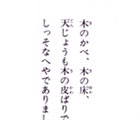 木のかべ、木の床、
天じょうも木の皮ばりで
しっそなへやでありまし